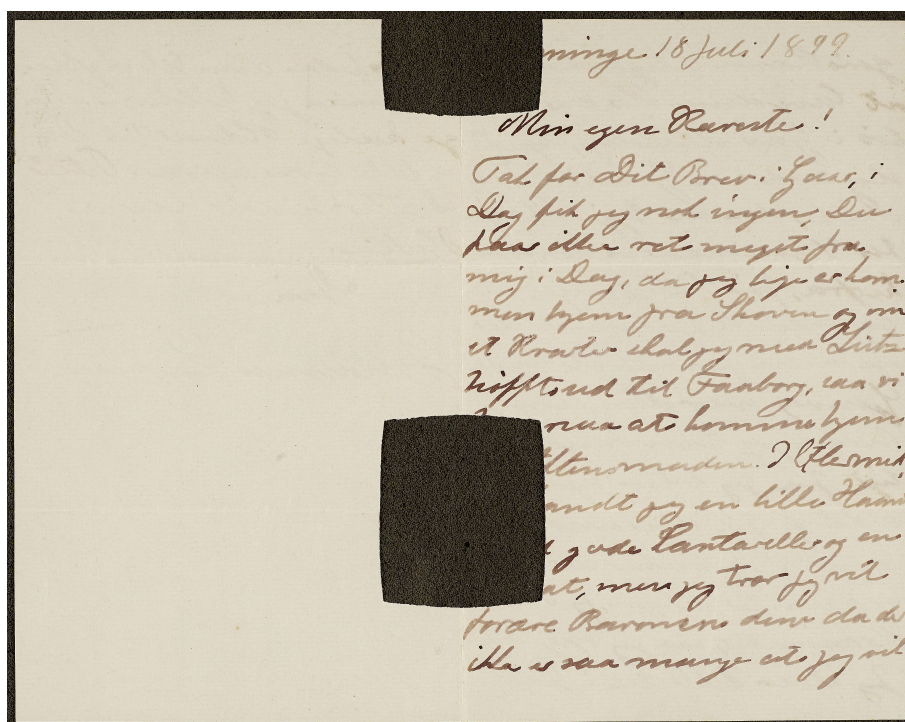 ninge 18 Juli 1899.
Min egen Kæreste!
Tak for Dit Brev i Gaar, i
Dag fik jeg nok ingen, Du
faar ikke ret meget fra
mig i Dag, da jeg lige er kom
men hjem fra Skoven og om
et Kvarter skal jeg med Lütz
høfft ud til Faaborg, saa vi
naa at komme hjem
ftensmaden. I Eftermid
andt jeg en lille Haand
d gode Cantareller og en
at, men jeg tror jeg vil
forære Baronen dem da de
ikke er saa mange at jeg vil